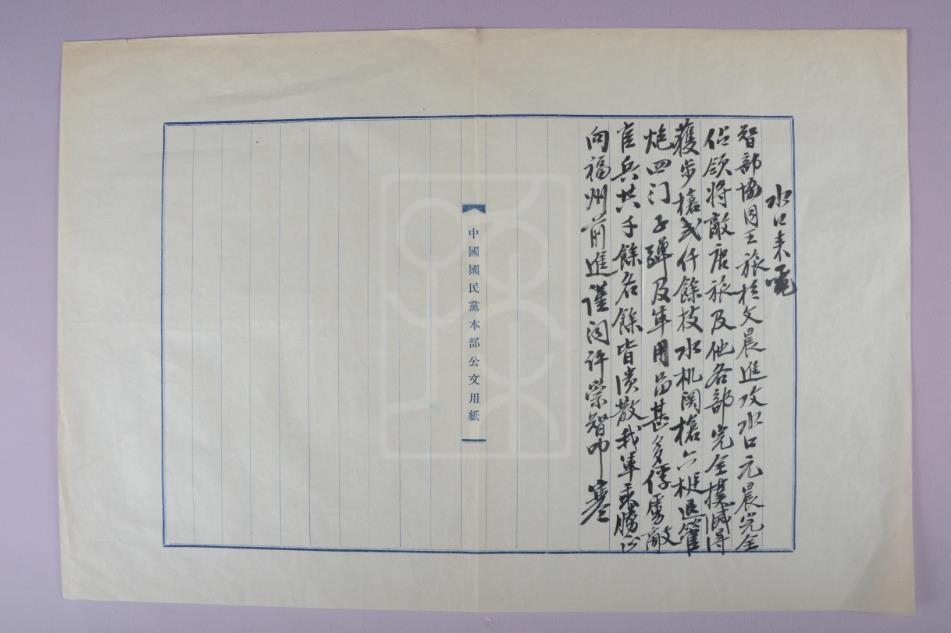 水口来電
智部協同王旅於文晨進攻水口元晨完全
佔領將敵唐旅及他各部完全撲滅得
獲步槍弍仟餘枝水机関槍六梃退管
炮四门子弹及軍用品甚多俘虜敵
官兵共千餘名餘皆潰散我軍乘勝正
向福州前進謹闻许崇智叩寒
中國國民黨本部公文用紙